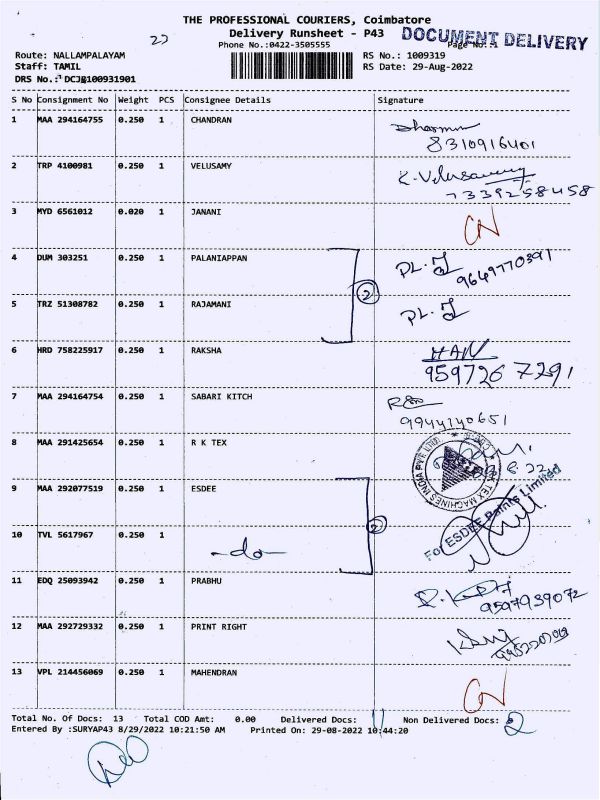 THE PROFESSIONAL COURIERS, Coimbatore
Delivery Runsheet - P43
DOCUMENT DELIVERY
Phone No.:0422-3505555
Page No.:1
Route: NALLAMPALAYAM
RS No.: 1009319
Staff: TAMIL
RS Date: 29-Aug-2022
DRS No.: DCJB100931901
S No Consignment No Weight PCS Consignee Details Signature
1 MAA 294164755 0.250 1 CHANDRAN
8310916401
2 TRP 4100981 0.250 1 VELUSAMY K. Velusamy
7339258458
3 MYD 6561012 0.020 1 JANANI CN
4 DUM 303251 0.250 1 PALANIAPPAN PL.
9649770391
2
5 TRZ 51308782 0.250 1 RAJAMANI PL.
6 HRD 758225917 0.250 1 RAKSHA HAN
959726 7291
7 MAA 294164754 0.250 1 SABARI KITCH
9944140651
8 MAA 291425654 0.250 1 R K TEX
RK TEX MACHINES INDIA PVT LTD
9 MAA 292077519 0.250 1 ESDEE
For ESDEE Paints Limited
2
10 TVL 5617967 0.250 1 -do-
11 EDQ 25093942 0.250 1 PRABHU
9597939072
12 MAA 292729332 0.250 1 PRINT RIGHT
13 VPL 214456069 0.250 1 MAHENDRAN CN
Total No. Of Docs: 13 Total COD Amt: 0.00 Delivered Docs: 11 Non Delivered Docs: 2
Entered By :SURYAP43 8/29/2022 10:21:50 AM Printed On: 29-08-2022 10:44:20